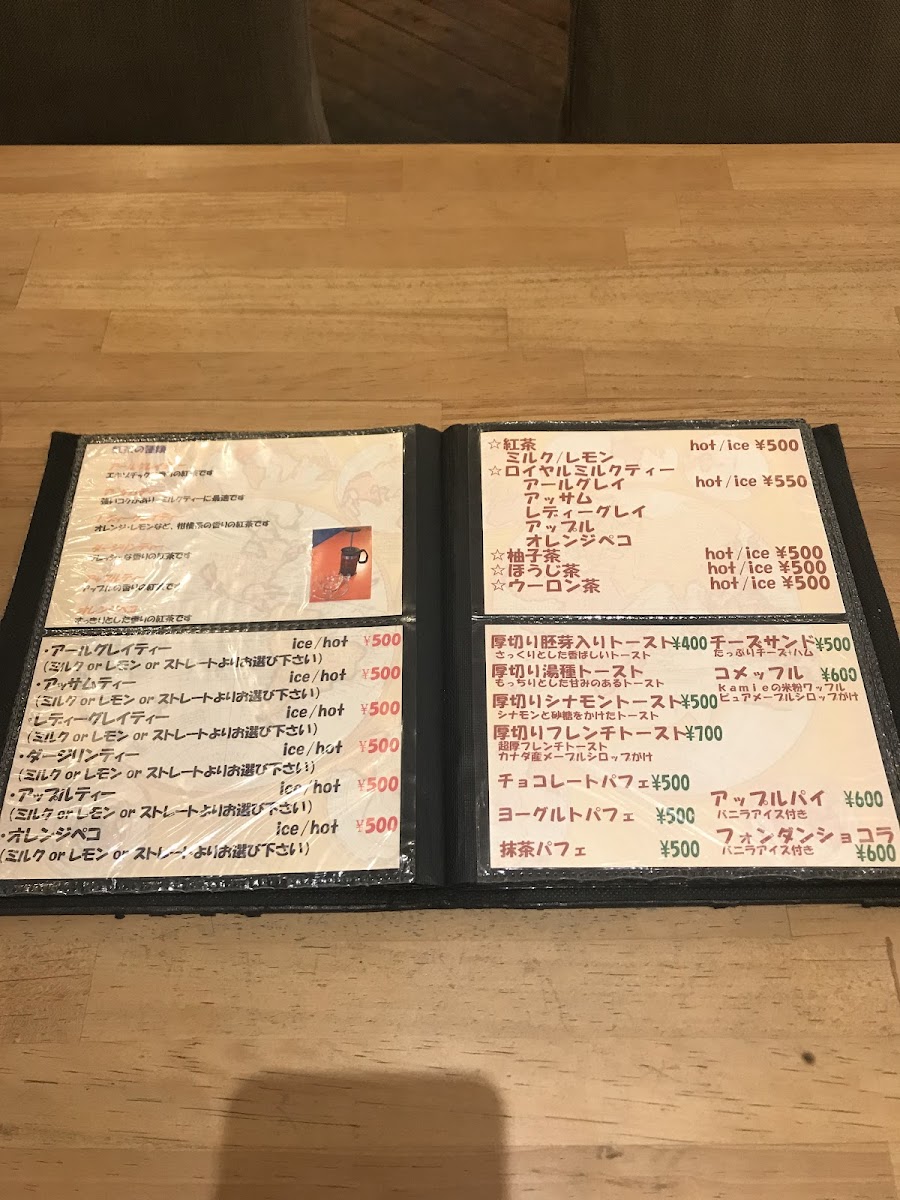 の種類
の紅茶です
強いコクがあり、ミルクティーに最適です
オレンジ・レモンなど、柑橘系の香りの紅茶です
な香りの紅茶です
アップルの香りの紅茶です
オレンジペコ
すっきりとした香りの紅茶です
・アールグレイティー ice/hot ¥500
(ミルク or レモン or ストレートよりお選び下さい)
・アッサムティー ice/hot ¥500
(ミルク or レモン or ストレートよりお選び下さい)
・レディーグレイティー ice/hot ¥500
(ミルク or レモン or ストレートよりお選び下さい)
・ダージリンティー ice/hot ¥500
(ミルク or レモン or ストレートよりお選び下さい)
・アップルティー ice/hot ¥500
(ミルク or レモン or ストレートよりお選び下さい)
・オレンジペコ ice/hot ¥500
(ミルク or レモン or ストレートよりお選び下さい)
☆紅茶 hot/ice ¥500
ミルク/レモン
☆ロイヤルミルクティー
アールグレイ hot/ice ¥550
アッサム
レディーグレイ
アップル
オレンジペコ
☆柚子茶 hot/ice ¥500
☆ほうじ茶 hot/ice ¥500
☆ウーロン茶 hot/ice ¥500
厚切り胚芽入りトースト¥400
さっくりとした香ばしいトースト
厚切り湯種トースト
もっちりとした甘みのあるトースト
厚切りシナモントースト¥500
シナモンと砂糖をかけたトースト
厚切りフレンチトースト¥700
超厚フレンチトースト
カナダ産メープルシロップがけ
チョコレートパフェ¥500
ヨーグルトパフェ ¥500
抹茶パフェ ¥500
チーズサンド¥500
たっぷりチーズ・ハム
コメッフル ¥600
kamieの米粉ワッフル
ピュアメープルシロップがけ
アップルパイ ¥600
バニラアイス付き
フォンダンショコラ
バニラアイス付き ¥600